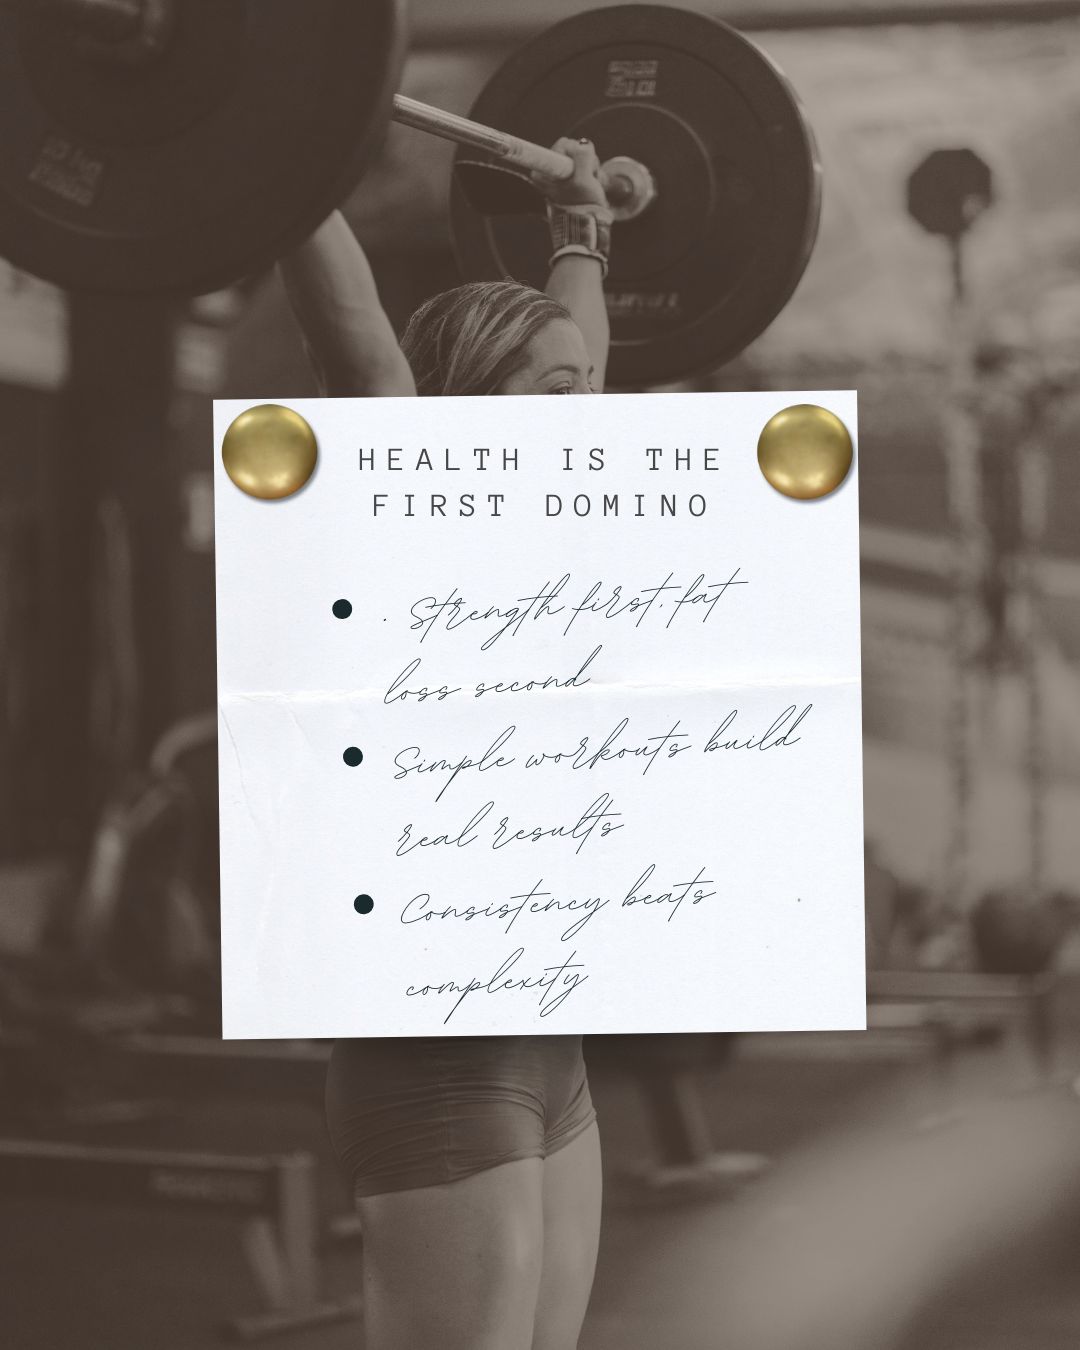 HEALTH IS THE
FIRST DOMINO
• . Strength first, fat
loss second
• Simple workouts build
real results
• Consistency beats
complexity